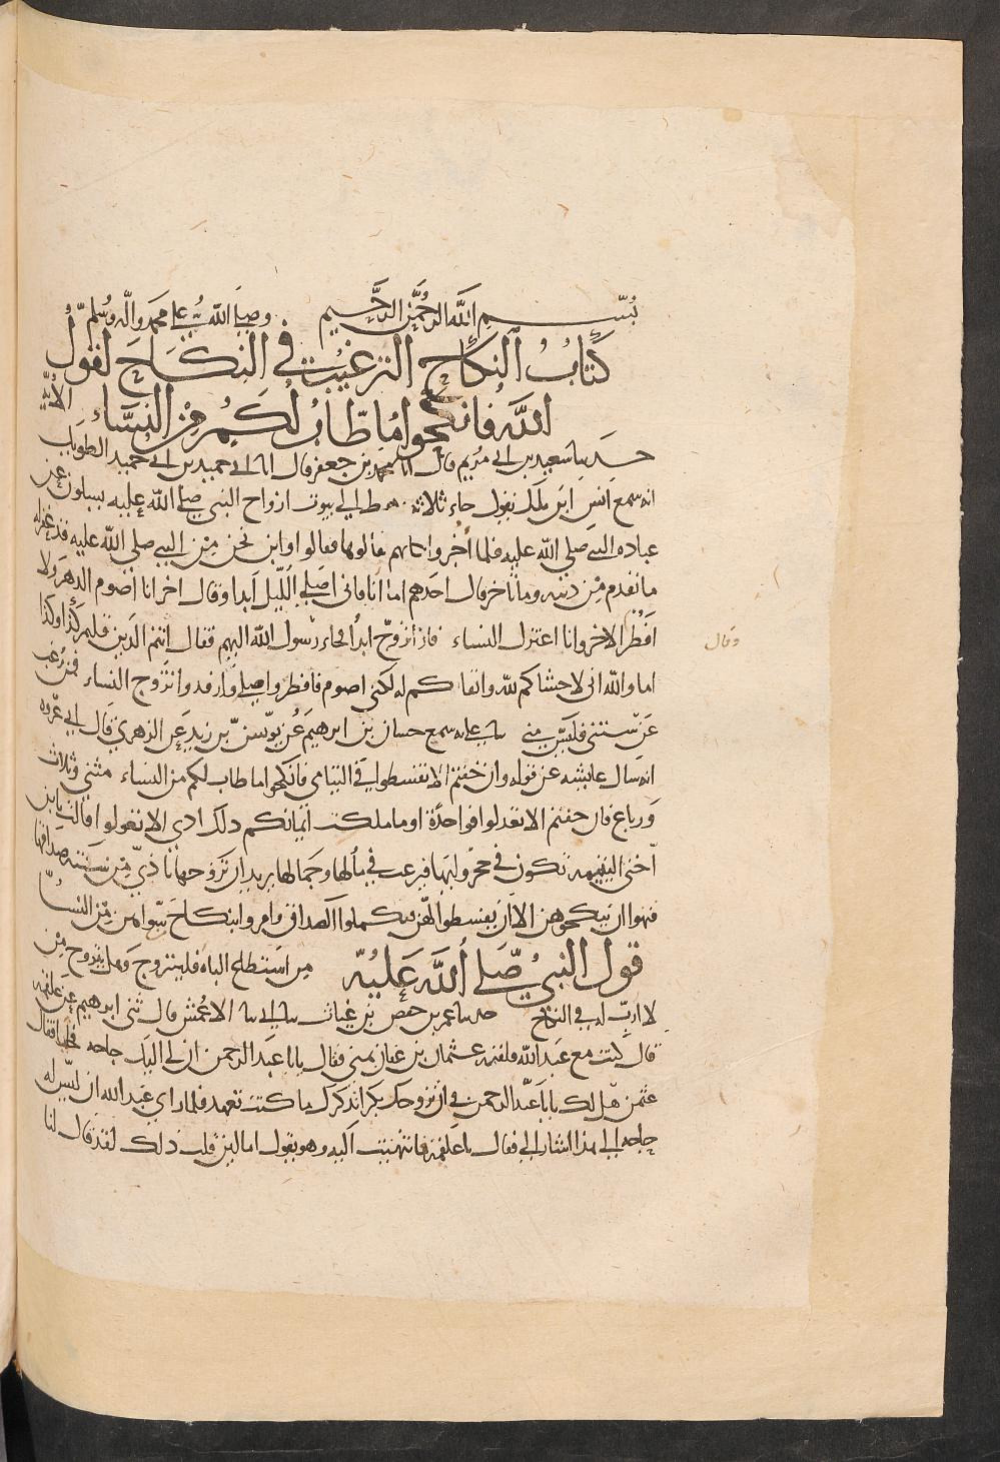 بسم الله الرحمن الرحيم وصلى الله على محمد واله وسلم
كتاب النكاح الترغيب في النكاح لقول
الله فانكحوا ما طاب لكم من النساء الاية
حدثنا سعيد بن ابي مريم قال انا محمد بن جعفر قال انا ابي حميد بن ابي حميد الطويل
انه سمع انس ابن ملك يقول جاء ثلاثة رهط الى بيوت ازواج النبي صلى الله عليه يسلون عن
عباده النبي صلى الله عليه فلما أخبروا كانهم تقالوها فقالوا واين نحن من النبي صلى الله عليه قد غفر له
ما تقدم من ذنبه وما تاخر قال احدهم اما أنا فاني اصلي الليل ابدا وقال اخر انا اصوم الدهر ولا
افطر الاخر وانا اعتزل النساء فلا اتزوج ابدا فجاء رسول الله اليهم فقال انتم الذين قلتم كذا وكذا
وقال
اما والله اني لاخشاكم لله واتقاكم له لكني اصوم وافطر واصلي وارقد واتزوج النساء فمن رغب
عن سنتي فليس مني نا علي سمع حسان بن ابرهيم عن يونس بن يزيد عن الزهري قال عروه
انه سال عايشه عن قوله وان خفتم الا تقسطوا في اليتامى فانكحوا ما طاب لكم من النساء مثنى وثلاث
ورباع فان خفتم الا تعدلوا فواحدة او ما ملكت ايمانكم ذلك ادنى الا تعولوا قالت يابن
أختي اليتيمه تكون في حجر وليها فيرغب في مالها وجمالها يريد ان يتزوجها بادنى من سنة صداقها
فنهوا ان ينكحوهن الا أن يقسطوا لهن فيكملوا الصداق وامروا بنكاح سواهن من النساء
قول النبي صلى الله عليه من استطاع الباه فليتزوج وهل يتزوج من
لا ارب له في النكاح حدثنا عمر بن حفص بن غياث نا ابي نا الاعمش قال ثني ابرهيم عن علقمه
قال كنت مع عبد الله فلقيه عثمان بمنى فقال يابا عبد الرحمن ان لي اليك حاجه فخليا فقال
عثمن هل لك يابا عبد الرحمن في ان نزوجك بكرا تذكرك ما كنت تعهد فلما راى عبد الله ان ليس له
حاجه الى هذا اشار الي فقال يا علقمة فانتهيت اليه وهو يقول اما لين قلت ذلك لقد قال لنا